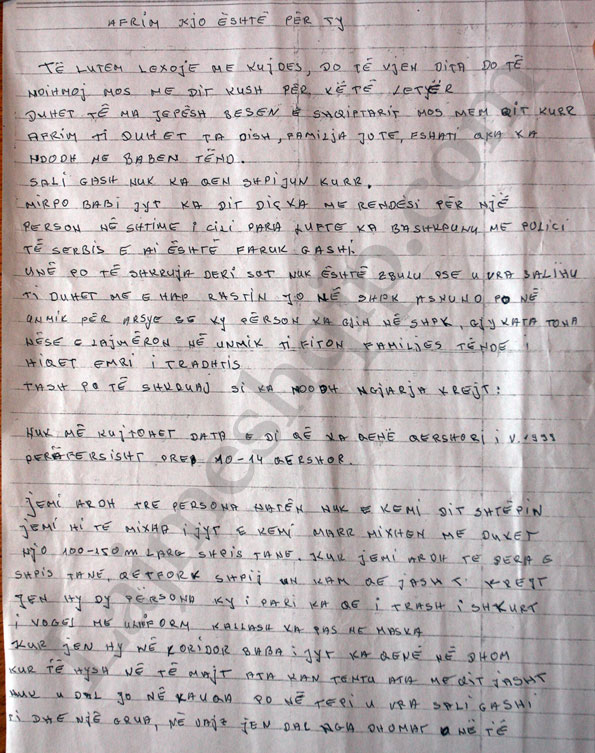 AFRIM KJO ËSHTË PËR TY
TË LUTEM LEXOJE ME KUJDES, DO TË VJEN DITA DO TË
NDIHMOJ MOS ME DIT KUSH PËR KËTË LETYËR
DUHET TË MA JEPËSH BESEN E SHQIPTARIT MOS MEM QIT KURR
AFRIM TI DUHET TA DISH, FAMILJA JOTE, FSHATI QKA KA
NDODH ME BABEN TËND.
SALI GASH NUK KA QEN SHPIJUN KURR.
MIRPO BABI JYT KA DIT DIÇKA ME RENDESI PËR NJË
PERSON NË SHTIME I CILI PARA LUFTE KA BASHKPUNU ME POLICI
TË SERBIS E AI ËSHTË FARUK GASHI.
UNË PO TË SHKRUJA DERI SOT NUK ËSHTË ZBULU PSE U VRA SALIHU
TI DUHET ME E HAP RASTIN JO NË SHPK ASNUNO PO NË
UNMIK PËR ARSYE SE KY PËRSON KA GJIN NË SHPK, GJYKATA TONA
NËSE E LAJMËRON NË UNMIK TI FITON FAMILJES TËNDE I
HIQET EMRI I TRADHTIS
TASH PO TË SHKRUAJ SI KA NDODH NGJARJA KREJT:
NUK MË KUJTOHET DATA E DI QË KA QENË QERSHORI I V. 1999
PËRAFERSISHT PREJ 10-14 QERSHOR.
JEMI ARDH TRE PERSONA NATËN NUK E KEMI DIT SHTËPIN
JEMI HI TË MIXHA I JYT E KEMI MARR MIXHEN ME DUKET
NJO 100-150 M LARG SHPIS TANE. KUR JEMI ARDH TE DERA E
SHPIS TANE, QETFORK SHPIJ UN KAM QE JASHT KREJT
JEN HY DY PËRSONA KY I PARI KA QE I TRASH I SHKURT
I VOGEL ME UNIFORM KALLASH KA PAS ME MASKA
KUR JEN HY NË KORIDOR BABA I JYT KA QENË NË DHOM
KUR TË HYSH NË TË MAJT ATA KAN TENTU ATA ME QIT JASHT
NUK U DAL JO NË KAUQA PO NË TERI U VRA SALI GASHI
DHE NJË GRUA, NË VAJZ JEN DAL NGA DHOMAT NË TË